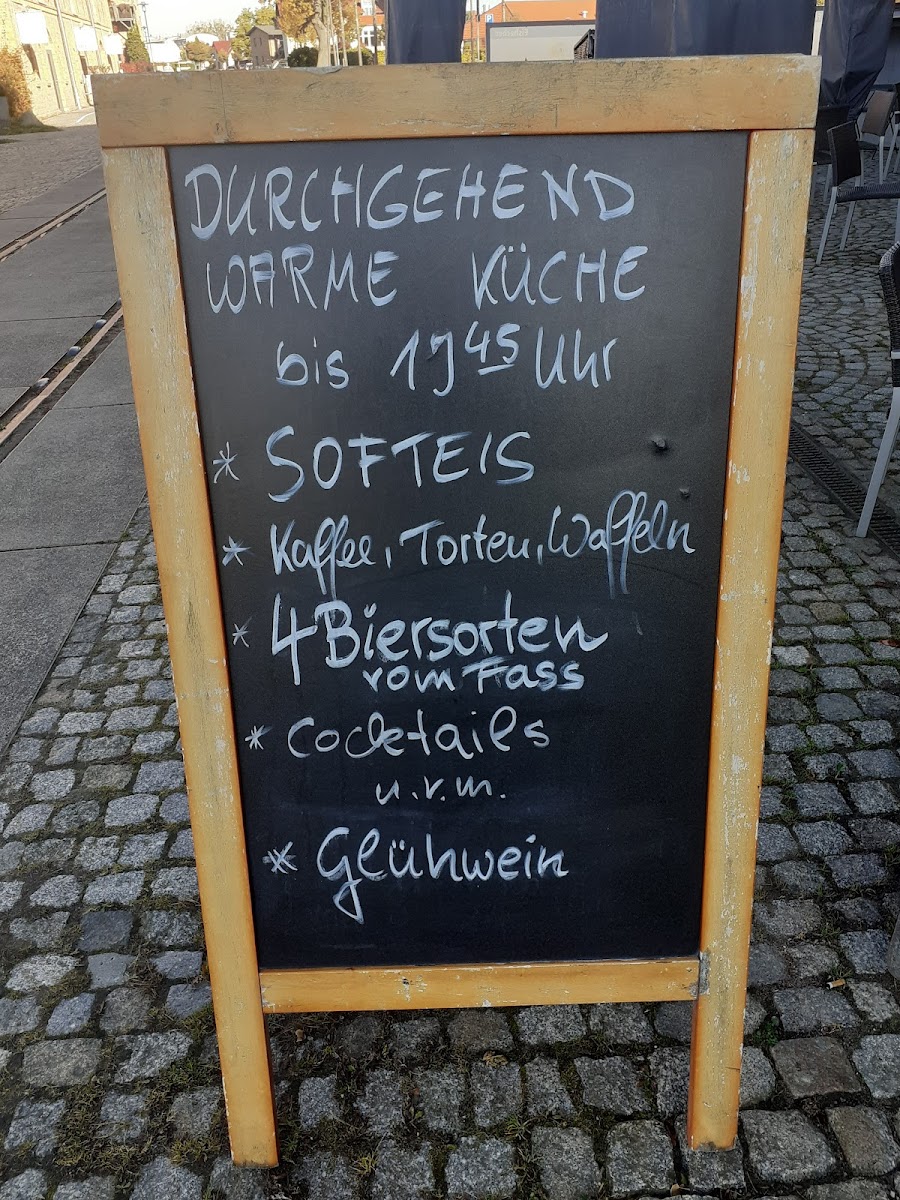 DURCHGEHEND
WARME KÜCHE
bis 19⁴⁵ Uhr
* SOFTEIS
* Kaffee, Torten, Waffeln
* 4 Biersorten
vom Fass
* Cocktails
u.v.m.
* Glühwein